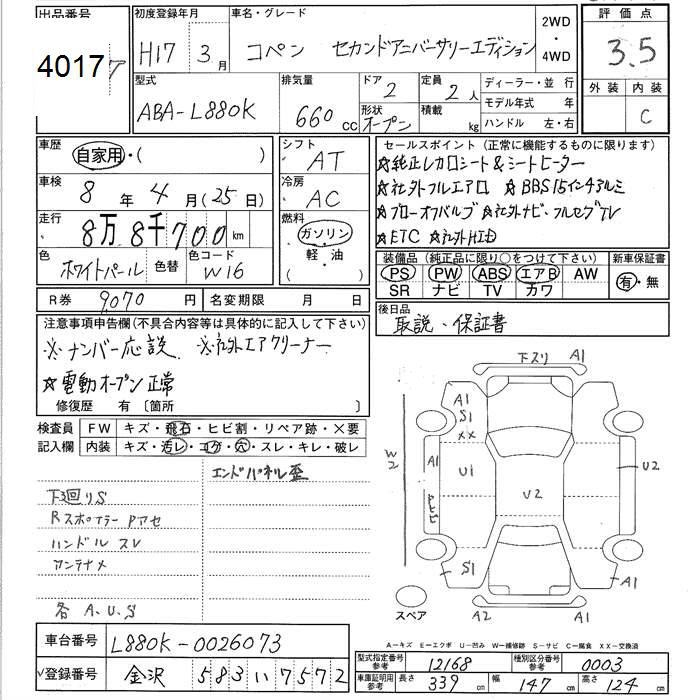 出品番号 初度登録年月 車名・グレード 2WD・4WD 評価点
4017 H17 3月 コペン セカンドアニバーサリーエディション 3.5
型式 排気量 ドア 定員 ディーラー・並行 外装 内装
ABA-L880K 660cc 2 2人 モデル年式 年 C
形状 オープン 積載 kg ハンドル 左・右
車歴 自家用・( ) シフト AT セールスポイント (正常に機能するものに限ります)
★純正レカロシート&シートヒーター
車検 8年4月(25日) 冷房 AC ★社外フルエアロ ★BBS15インチアルミ
★ブローオフバルブ ★社外ナビ・フルセグTV
走行 8万8千700km 燃料 ガソリン・軽油 ( ) ★ETC ★社外HID
色 ホワイトパール 色替 色コード W16
装備品 (純正品に限り○をつけて下さい) 新車保証書
PS PW ABS エアB AW 有・無
SR ナビ TV カワ
R券 9,070円 名変期限 月 日
後日品 取説・保証書
注意事項申告欄(不具合内容等は具体的に記入して下さい)
※ナンバー応談 ※社外エアクリーナー
★電動オープン正常
修復歴 有〔箇所 〕
検査員記入欄 FW キズ・飛石・ヒビ割・リペア跡・×要
内装 キズ・汚レ・コゲ・穴・スレ・キレ・破レ
エンドパネル歪
下廻りS
Rスポイラー Pアセ
ハンドル スレ
アンテナ〆
各 A.U.S
下スリ A1
A1
S1
XX
W2 A1 U1 U2 U2
S1 A1
スペア A2 A1
A-キズ E-エクボ U-凹み W-補修跡 S-サビ C-腐食 XX-交換済
車台番号 L880K-0026073
登録番号 金沢 583 い 7572
型式指定番号参考 12168 種別区分番号参考 0003
車庫証明用参考 長さ 339cm 幅 147cm 高さ 124cm